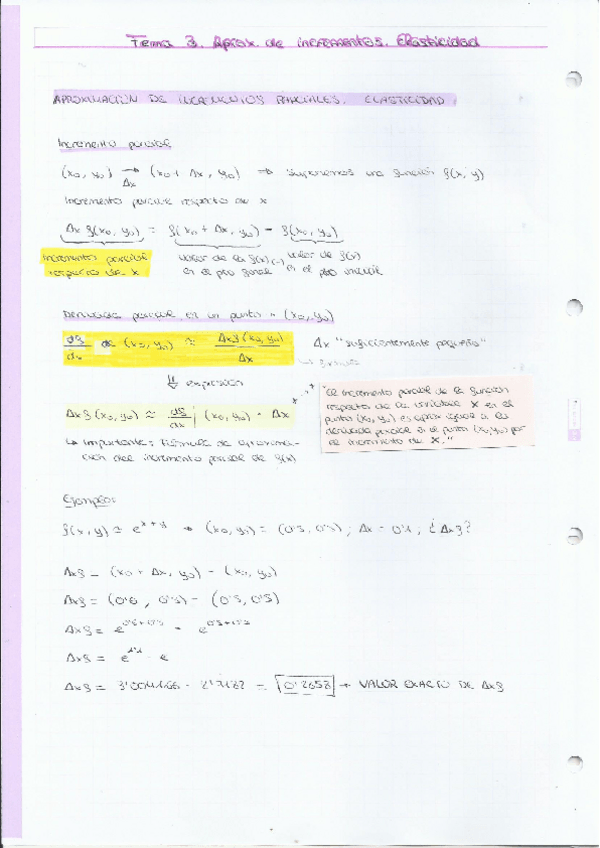 Tema 3. Aprox. de incrementos. Elasticidad
APROXIMACIÓN DE INCREMENTOS PARCIALES. ELASTICIDAD
Incremento parcial
(x₀, y₀) →Δx (x₀ + Δx, y₀) → Suponemos una función f(x, y)
Incremento parcial respecto de x
Δx f(x₀, y₀) = f(x₀ + Δx, y₀) - f(x₀, y₀)
Incremento parcial respecto de x
valor de la f(x) en el pto final
valor de f(x) en el pto inicial
Derivada parcial en un punto (x₀, y₀)
df/dx de (x₀, y₀) ≈ Δx f(x₀, y₀)/Δx Δx "suficientemente pequeño"
⇓ expresión
Δx f(x₀, y₀) ≈ df/dx | (x₀, y₀) · Δx
"El incremento parcial de la función
respecto de la variable X en el
punto (x₀, y₀) es aprox igual a la
derivada parcial en el punto (x₀, y₀) por
el incremento de X."
↳ Importante: Fórmula de aproxima-
ción del incremento parcial de f(x)
Ejemplo:
f(x, y) = e^(x+y) → (x₀, y₀) = (0'5, 0'5) ; Δx = 0'1 ; ¿Δxf?
Δxf = (x₀ + Δx, y₀) - (x₀, y₀)
Δxf = (0'6, 0'5) - (0'5, 0'5)
Δxf = e^(0'6+0'5) - e^(0'5+0'5)
Δxf = e^(1'1) - e
Δxf = 3'004166 - 2'7182 = 0'2858 → VALOR EXACTO DE Δxf